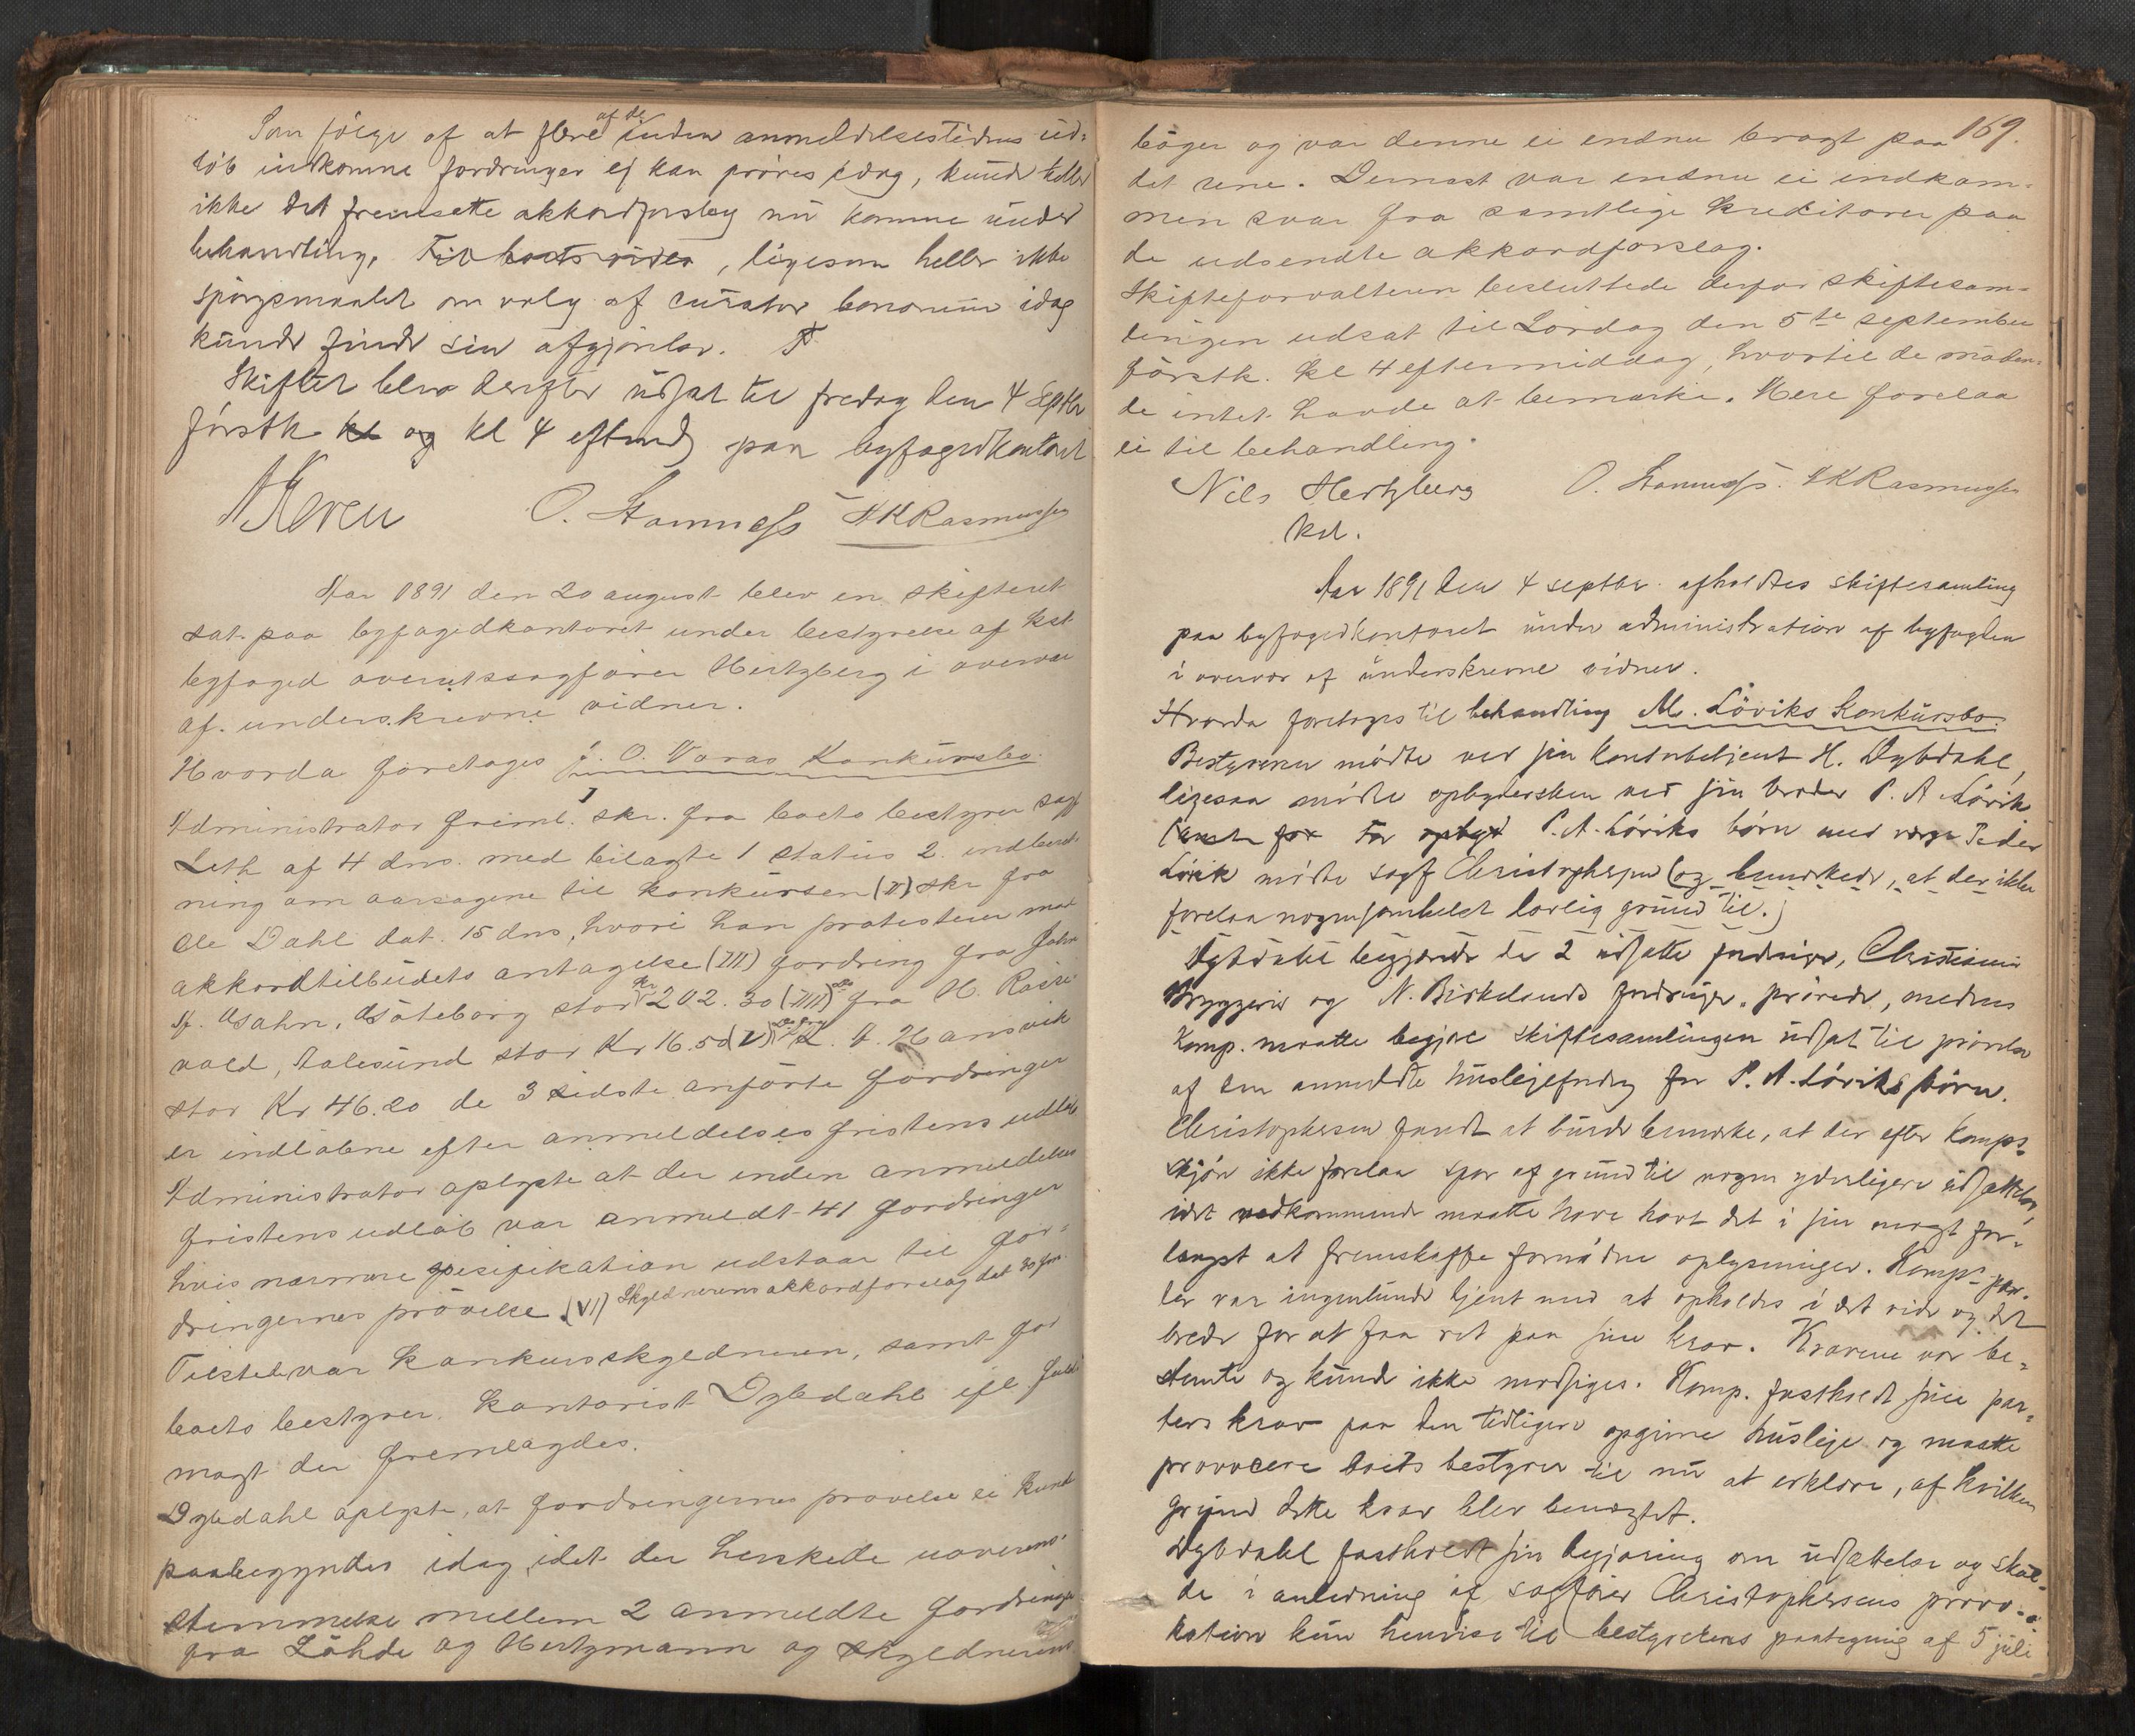 Som følge af at flere af de inden anmeldelsestidens ud-
løb indkomne fordringer ej kan prøves idag, kunde heller
ikke det fremsatte akkordforslag nu komme under
behandling, ligesom heller ikke
spørgsmaalet om valg af curator bonorum idag
kunde finde sin afgjørelse.
Skiftet blev derefter udsat til fredag den 4 Septbr
førstk kl og kl 4 eftmd paa byfogedkontoret
O. Stamness HKRasmussen
Aar 1891 den 20 august blev en skifteret
sat paa byfogedkontoret under bestyrelse af kst
byfoged overretssagfører Hertzberg i overvær
af underskrevne vidner.
Hvorda foretoges J. O. Voras Konkursbo.
Administrator freml. I skr. fra boets bestyrer sagf
Leth af 4 dns. med bilagte 1 status 2. indberet-
ning om aarsagene til konkursen (II) skr fra
Ole Dahl dat. 15 dns, hvori han protesterer mod
akkordtilbudets antagelse (III) fordring fra John
stor Kr 202.30 (IIII) do fra H.
vald, Aalesund stor Kr 16.50 (V) do fra L. A. Hansvik
stor Kr 46.20 de 3 sidste anførte fordringer
er indløbne efter anmeldelsesfristens udløb
Administrator oplyste at der inden anmeldelses
fristens udløb var anmeldt 41 fordringer
hvis nærmere spesifikation udstaar til for-
dringernes prøvelse. (VI) Skyldnerens akkordforslag dat 30 f.m.
Tilstede var konkursskyldneren, samt for
boets bestyrer kontorist Dybdahl ifl fuld
magt der fremlagdes.
Dybdahl oplyste, at fordringernes prøvelse ei kunde
paabegyndes idag, idet der herskede uoverens-
stemmelse mellem 2 anmeldte fordringer
fra Löhde og Hertzmann og skyldnerens
169.
bøger og var denne ei endnu bragt paa
det rene. Dernæst var endnu ei indkom-
men svar fra samtlige kreditorer paa
de udsendte akkordforslag.
Skifteforvalteren besluttede derfor skiftesam-
lingen udsat til Lørdag den 5te september
førstk. kl 4 eftermiddag, hvortil de møden-
de intet havde at bemærke. Mere forelaa
ei til behandling.
Nils Hertzberg O. Stamness. HKRasmussen
kst.
Aar 1891 den 4 septbr. afholdtes skiftesamling
paa byfogedkontoret under administration af byfogden
i overvær af underskrevne vidner.
Hvorda foretoges til behandling M. Løviks Konkursbo.
Bestyreren mødte ved sin kontorbetjent H. Dybdahl,
ligesaa mødte opbydersken ved sin broder P. A. Løvik
For P. A. Løviks børn med værge Peder
Løvik mødte sagf Christophersen (og bemærkede, at der ikke
forelaa nogensomhelst lovlig grund til.)
Dybdahl begjærede de 2 udsatte fordringer, Christiania
Bryggeri og N. Birkelunds fordringer prøvede, medens
Komp. maatte begjære skiftesamlingen udsat til prøvelse
af den anmeldte huslejefordring for P. A. Løviks børn.
Christophersen fandt at burde bemærke, at der efter Komps
skjøn ikke forelaa spor af grund til nogen yderligere udsættelse,
idet vedkommende maatte have havt det i sin magt for-
længst at fremskaffe fornødne oplysninger. Komps par-
ter var ingenlunde tjent med at opholdes i det vide og det
brede for at faa ret paa sine krav. Kravene var be-
stemte og kunde ikke modsiges. Komp. fastholdt sine par-
ters krav paa den tidligere opgivne husleje og maatte
provocere boets bestyrer til nu at erklære, af hvilken
grund dette krav blev benægtet.
Dybdahl fastholdt sin begjæring om udsættelse og skul-
de i anledning af sagfører Christophersens provo-
kation kun henvise til bestyrelsens paategning af 5 juli